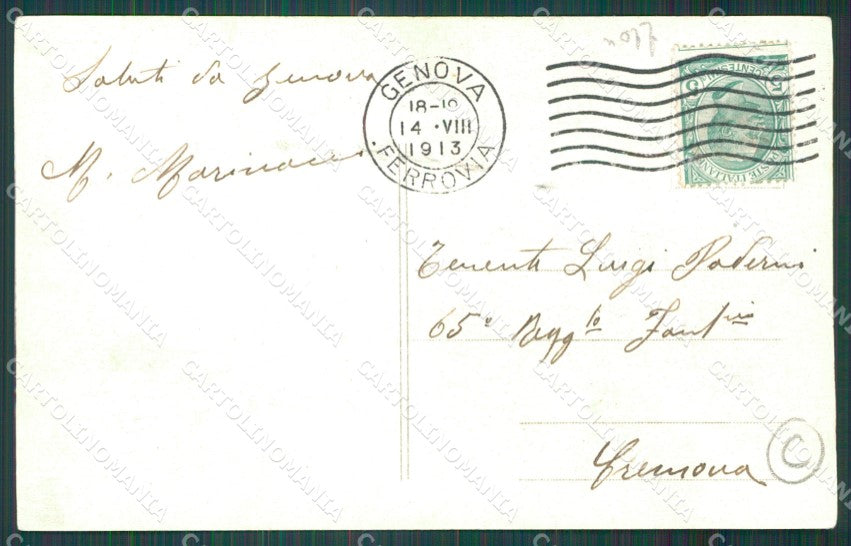 Saluti da Genova
M. Marinacci
GENOVA
18-19
14 · VIII
1913
· FERROVIA
Tenente Luigi Paderni
65° Regg.to Fant.ria
Cremona
C
CENTESIMI
5
POSTE ITALIANE
CARTOLINOMANIA